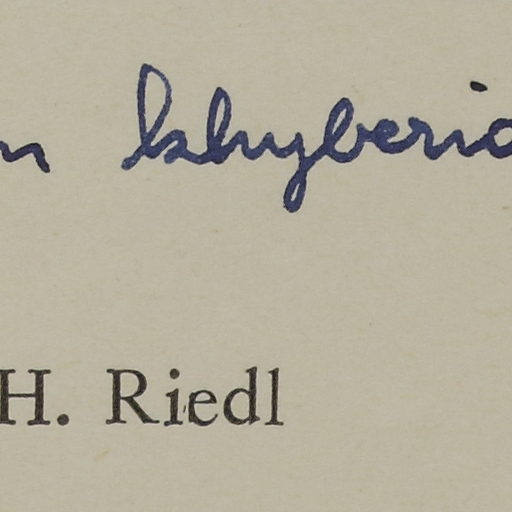 n khyberic
H. Riedl